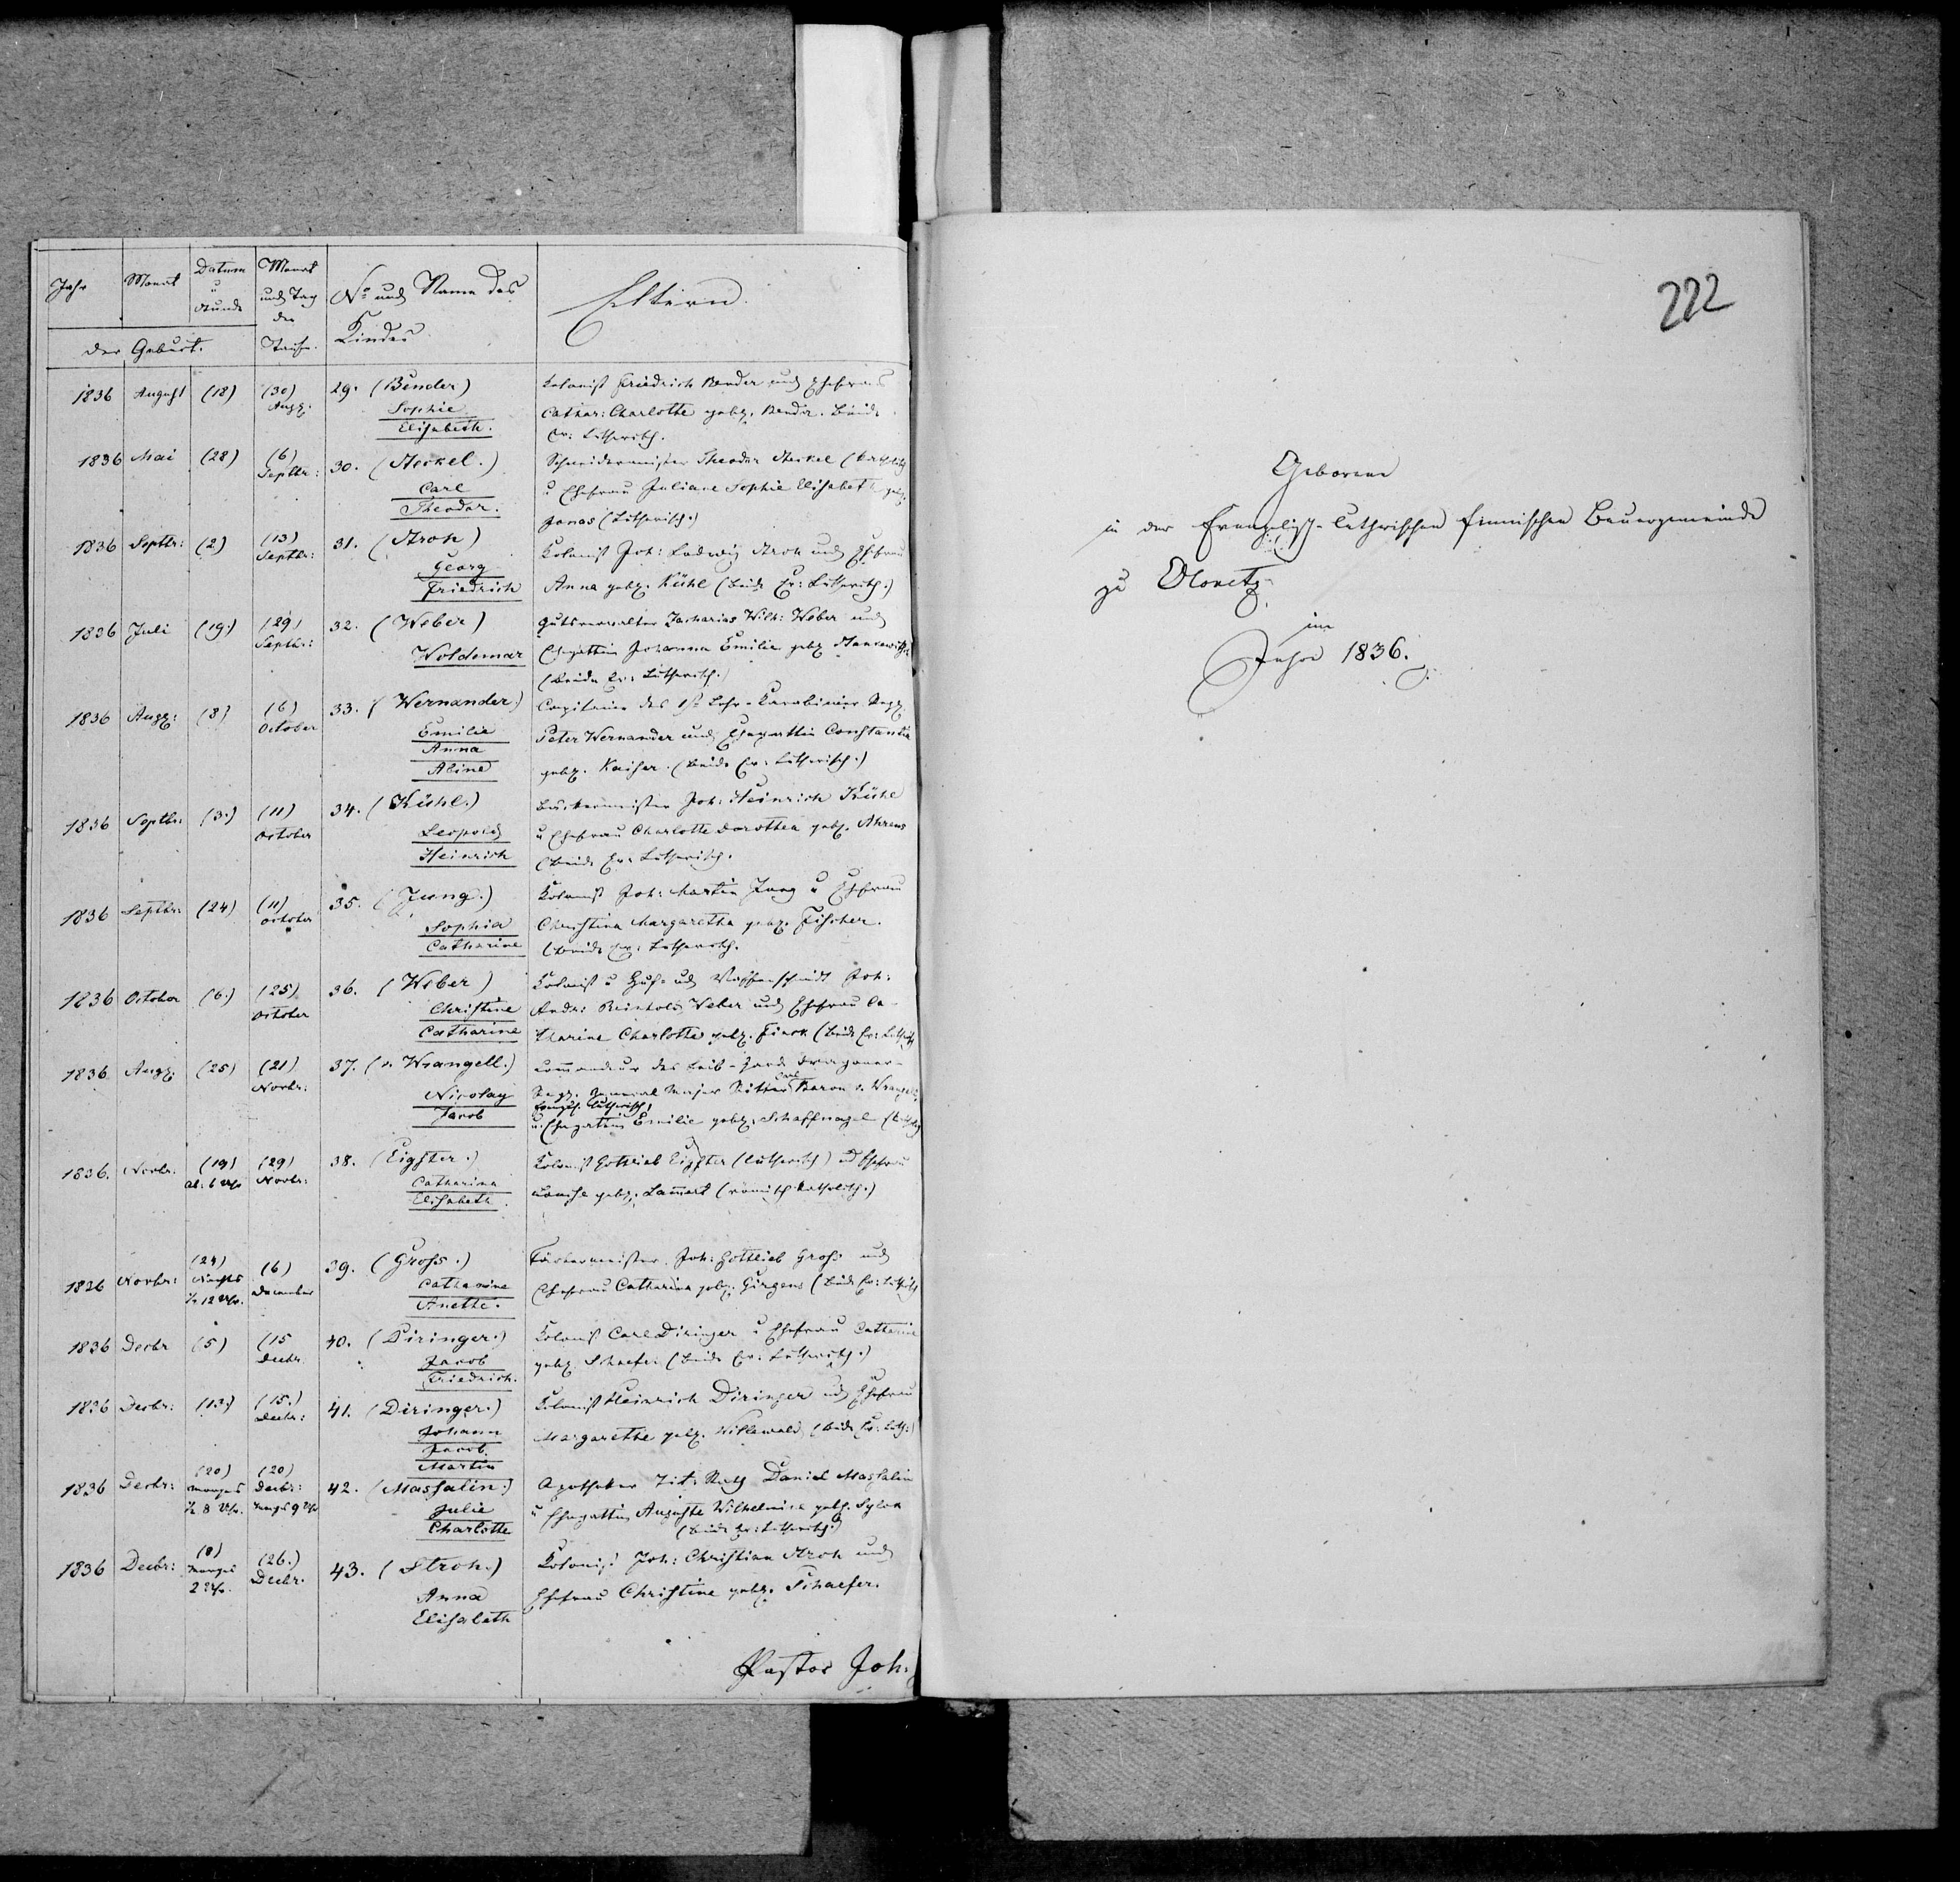 Jahr Monat Datum u Stunde Monat und Tag der Taufe No und Name des Kindes Eltern.
der Geburt.
1836 August (18) (30) Aug. 29. (Bender) Kolonist Friedrich Bender und Ehefrau
Sophie Cathar: Charlotte geb. Bender. Beide
Elisabeth. Ev: Lutherisch.
1836 Mai (28) (6) Septbr: 30. (Merkel.) Schneidermeister Theodor Merkel
Carl u Ehefrau Juliane Sophie Elisabeth geb.
Theodor. Jonas (Lutherisch.)
1836 Septbr: (2) (13) Septbr: 31. (Stroh) Kolonist Joh: Ludwig Stroh und Ehefrau
Georg
Friedrich Anna geb. Kühl (beide Ev: Lutherisch.)
1836 Juli (19.) (29) Septbr: 32. (Weber) Gutsverwalter Zacharias Wilh: Weber und
Woldemar Ehegattin Johanna Emilie geb.
(beide Ev: Lutherisch.)
1836 Aug: (8) (6) October 33. (Wernander.) Capitaine des 1st Lehr-Karabinier Reg.
Emilie Peter Wernander und Ehegattin Constantia
Anna
Aline geb. Kaiser. (beide Ev: Lutherisch.)
1836 Septbr: (3.) (11) October 34. (Kühl.) Joh: Heinrich Kühl
Leopold u Ehefrau Charlotte Dorothea geb. Ahrens
Heinrich (beide Ev: Lutherisch.
1836 Septbr: (24) (11) October 35. (Jung.) Kolonist Joh: Martin Jung u Ehefrau
Sophia Christina Margaretha geb. Fischer.
Catharine (beide Ev: Lutherisch.
1836 October (6.) (25) October 36. (Weber) Kolonist u Huf- und Waffenschmidt Joh:
Christine Andr: Reinhold Weber und Ehefrau Ca-
Catharine tharina Charlotte geb. Finck (beide Ev: Luth
1836 Aug. (25) (21) Novbr: 37. (v. Wrangell.) Commandeur des Leib-Garde Dragoner-
Nicolay Reg. General Major Ritter Carl Baron v. Wrangell
Evangel. lutherisch,
Jacob u. Ehegattin Emilie geb. Schaffnagel
1836. Novbr. (19) ab: 6 Uhr (29) Novbr: 38. (Eigster.) Kolonist Gottlieb Eigster (lutherisch) und Ehefrau
Catharina
Elisabeth. Louise geb. Lammert (römisch katholisch.)
1836 Novbr: (24) Nachts ½ 12 Uhr. (6) December 39. (Gross.) Färbermeister Joh: Gottlieb Gross und
Catharine Ehefrau Catharina geb. Hirgens (beide Ev: Luth
Anette.
1836 Decbr (5) (15 Decbr 40. (Diringer.) Kolonist Carl Diringer u Ehefrau Catharine
Jacob geb. Schaefer (beide Ev: Lutherisch.)
Friedrich.
1836 Decbr: (13.) (15.) Decbr: 41. (Diringer.) Kolonist Heinrich Diringer und Ehefrau
Johann Margarethe geb. Willewald (beide Ev: Luth:)
Jacob.
Martin
1836 Decbr: (20) Morgens ½ 8 Uhr. (20) Decbr: 9 Uhr 42. (Massalin.) Apotheker Tit: Rath Daniel Massalin
Julie u Ehegattin Auguste Wilhelmine geb.
Charlotte (beide Ev: Lutherisch.)
1836 Decbr: (8) Morgens 2 Uhr. (26.) Decbr. 43. (Stroh.) Kolonist Joh: Christian Stroh und
Anna Ehefrau Christine geb. Schaefer.
Elisabeth
Pastor Joh:
222
Geborene
in der Evangelisch-Lutherischen finnischen Bauergemeinde
zu Olonetz
im
Jahre 1836.